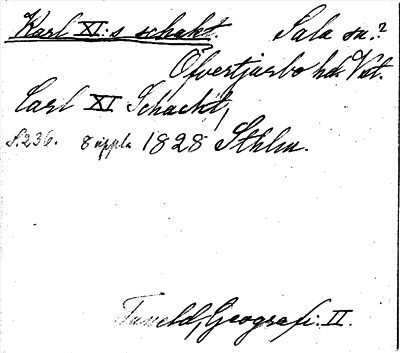 Karl XI:s schakt. Sala sn.?
Öfvertjurbo hd. Vstl.
Carl XI Schackt,
S. 236. 8 uppl. 1828 Sthlm.
Tuneld, Geografi. II.